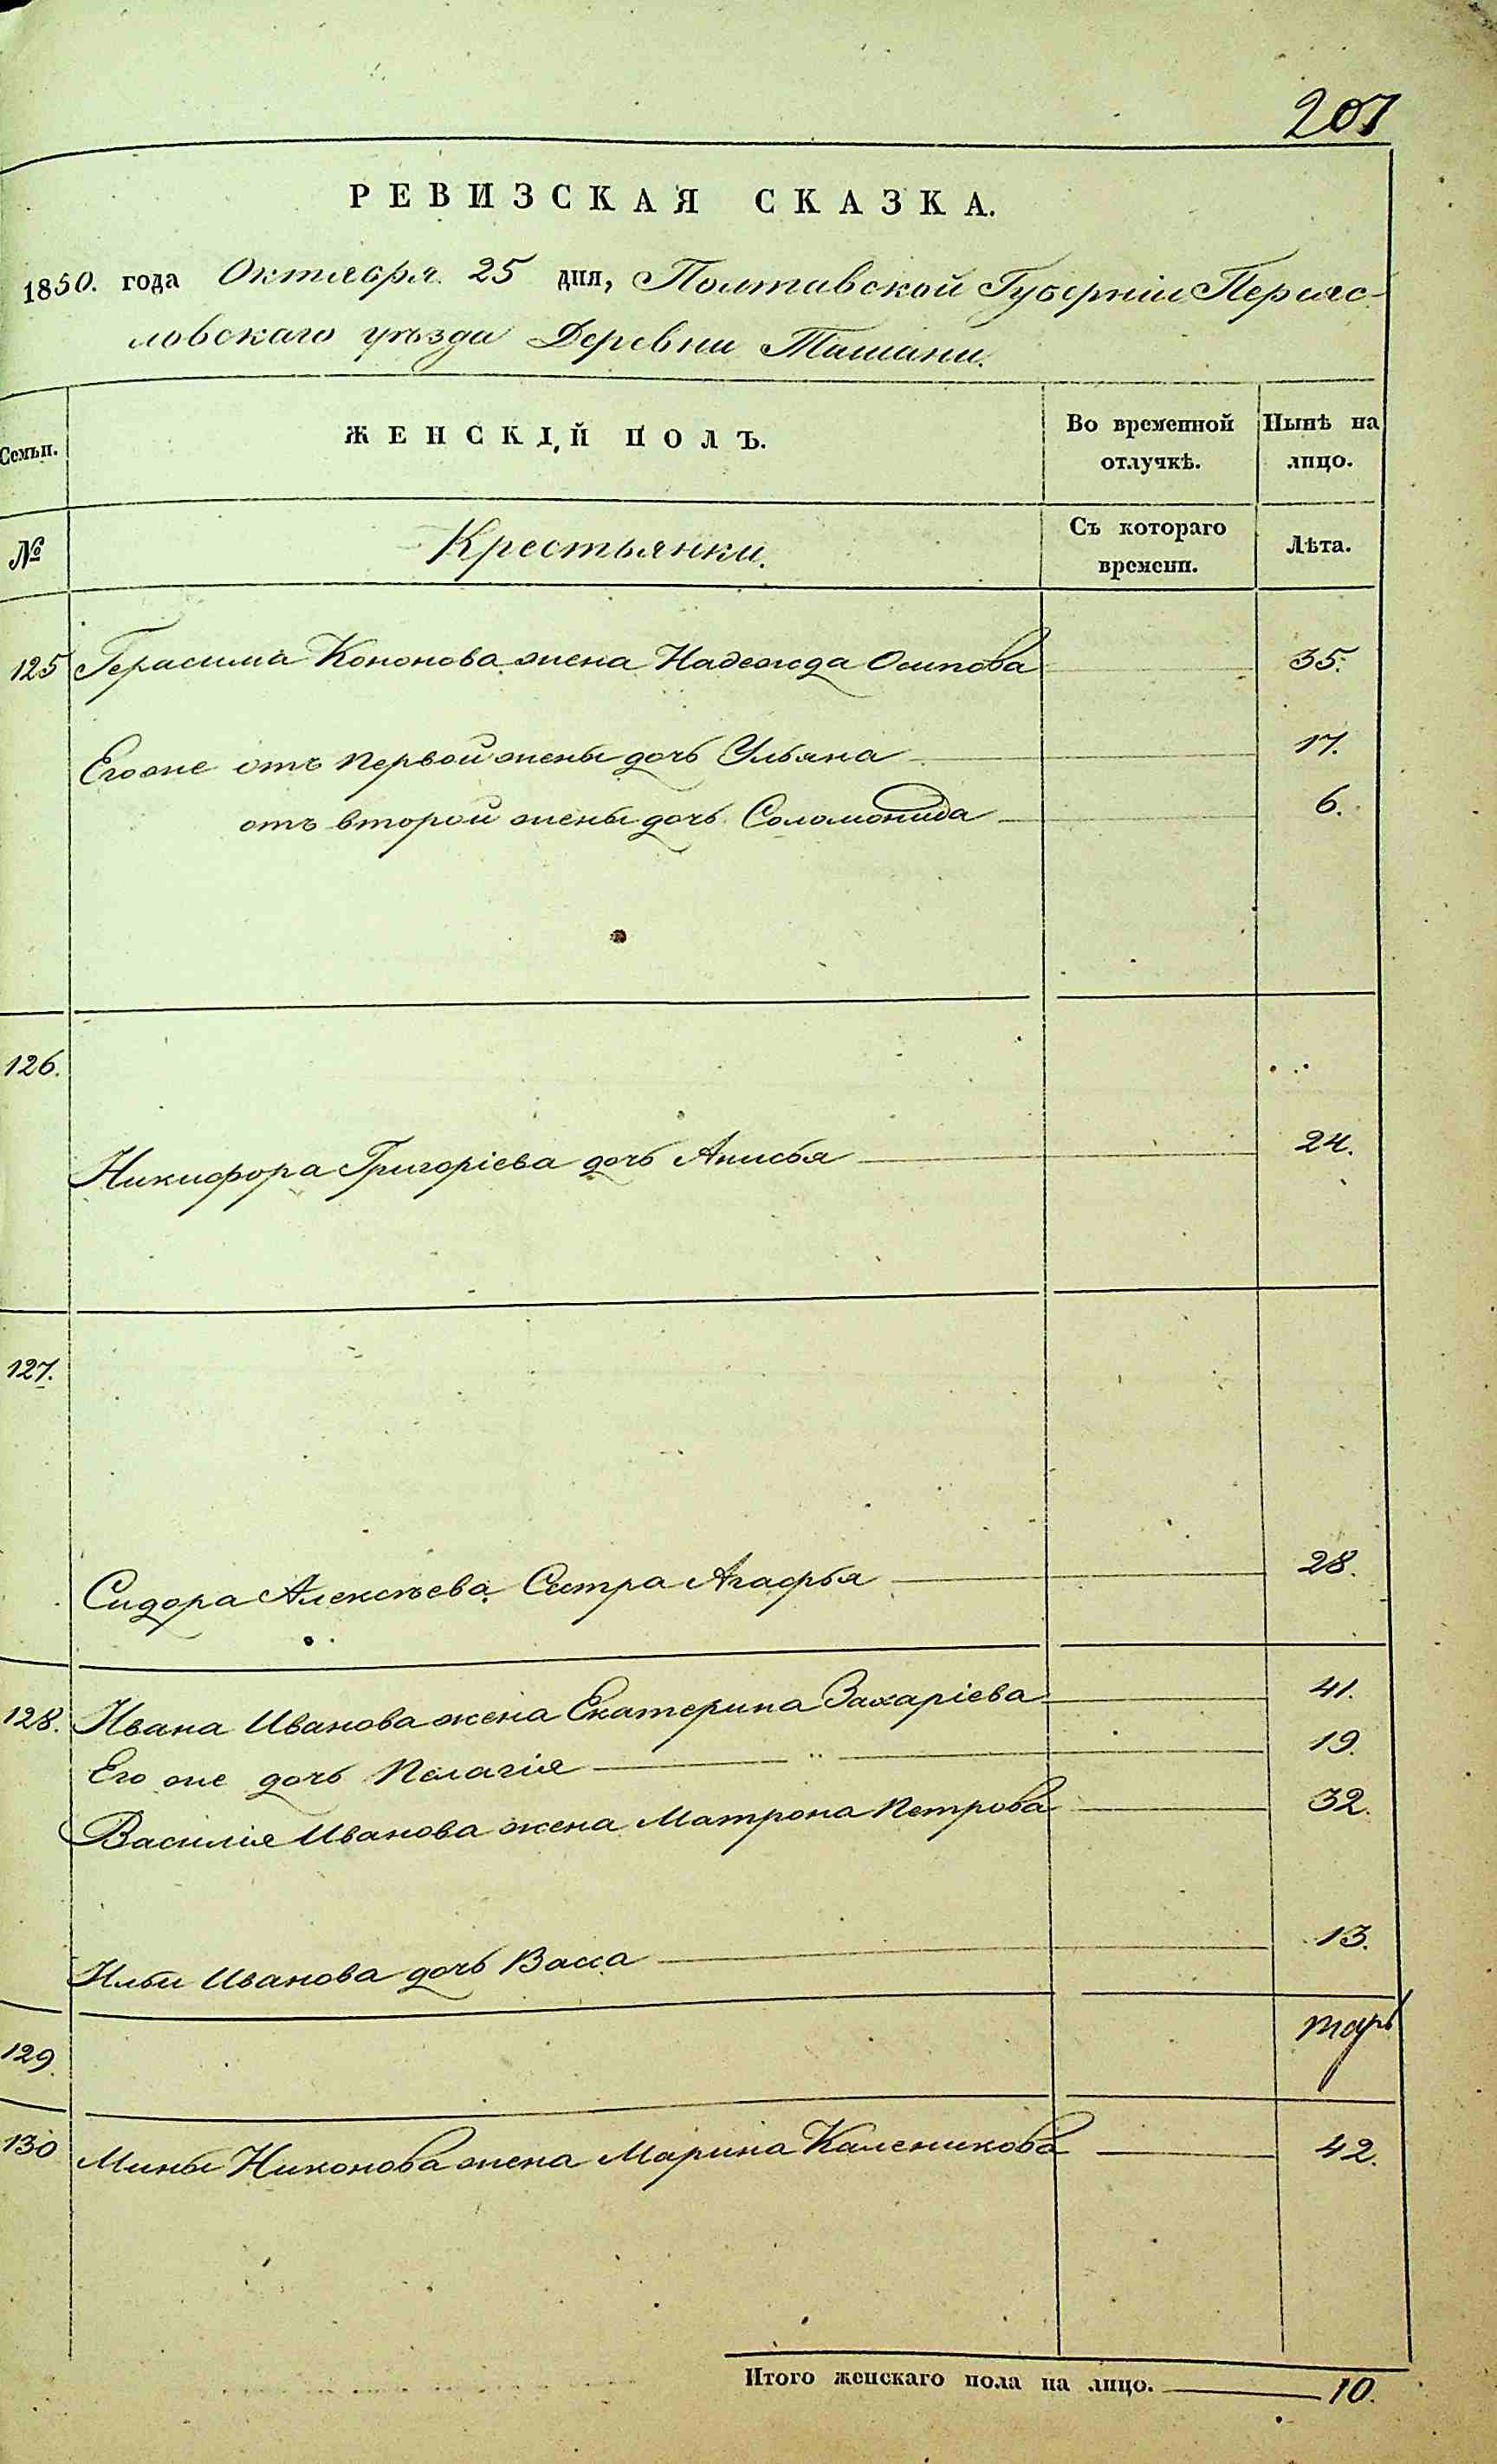 207
РЕВИЗСКАЯ СКАЗКА.
1850. года Октября 25 дня, Полтавской Губерніи Переяс-
ловскаго уѣзда Деревни Ташани.
Семьи.
ЖЕНСКІЙ ПОЛЪ.
Во временной отлучкѣ.
Нынѣ на лицо.
№
Крестьянки.
Съ котораго времени.
Лѣта.
125 Герасима Кононова жена Надежда Осипова 35.
Его же отъ первой жены дочь Ульяна 17.
отъ второй жены дочь Соломонида 6.
126.
Никифора Григоріева дочь Анисья 24.
127.
Сидора Алексѣева Сестра Агафья 28.
128. Ивана Иванова жена Екатерина Захаріева 41.
Его же дочь Пелагія 19.
Василія Иванова жена Матрона Петрова 32.
Ильи Иванова дочь Васса 13.
129.
130 Мины Никонова жена Марина Каленикова 42.
Итого женскаго пола на лицо. 10.